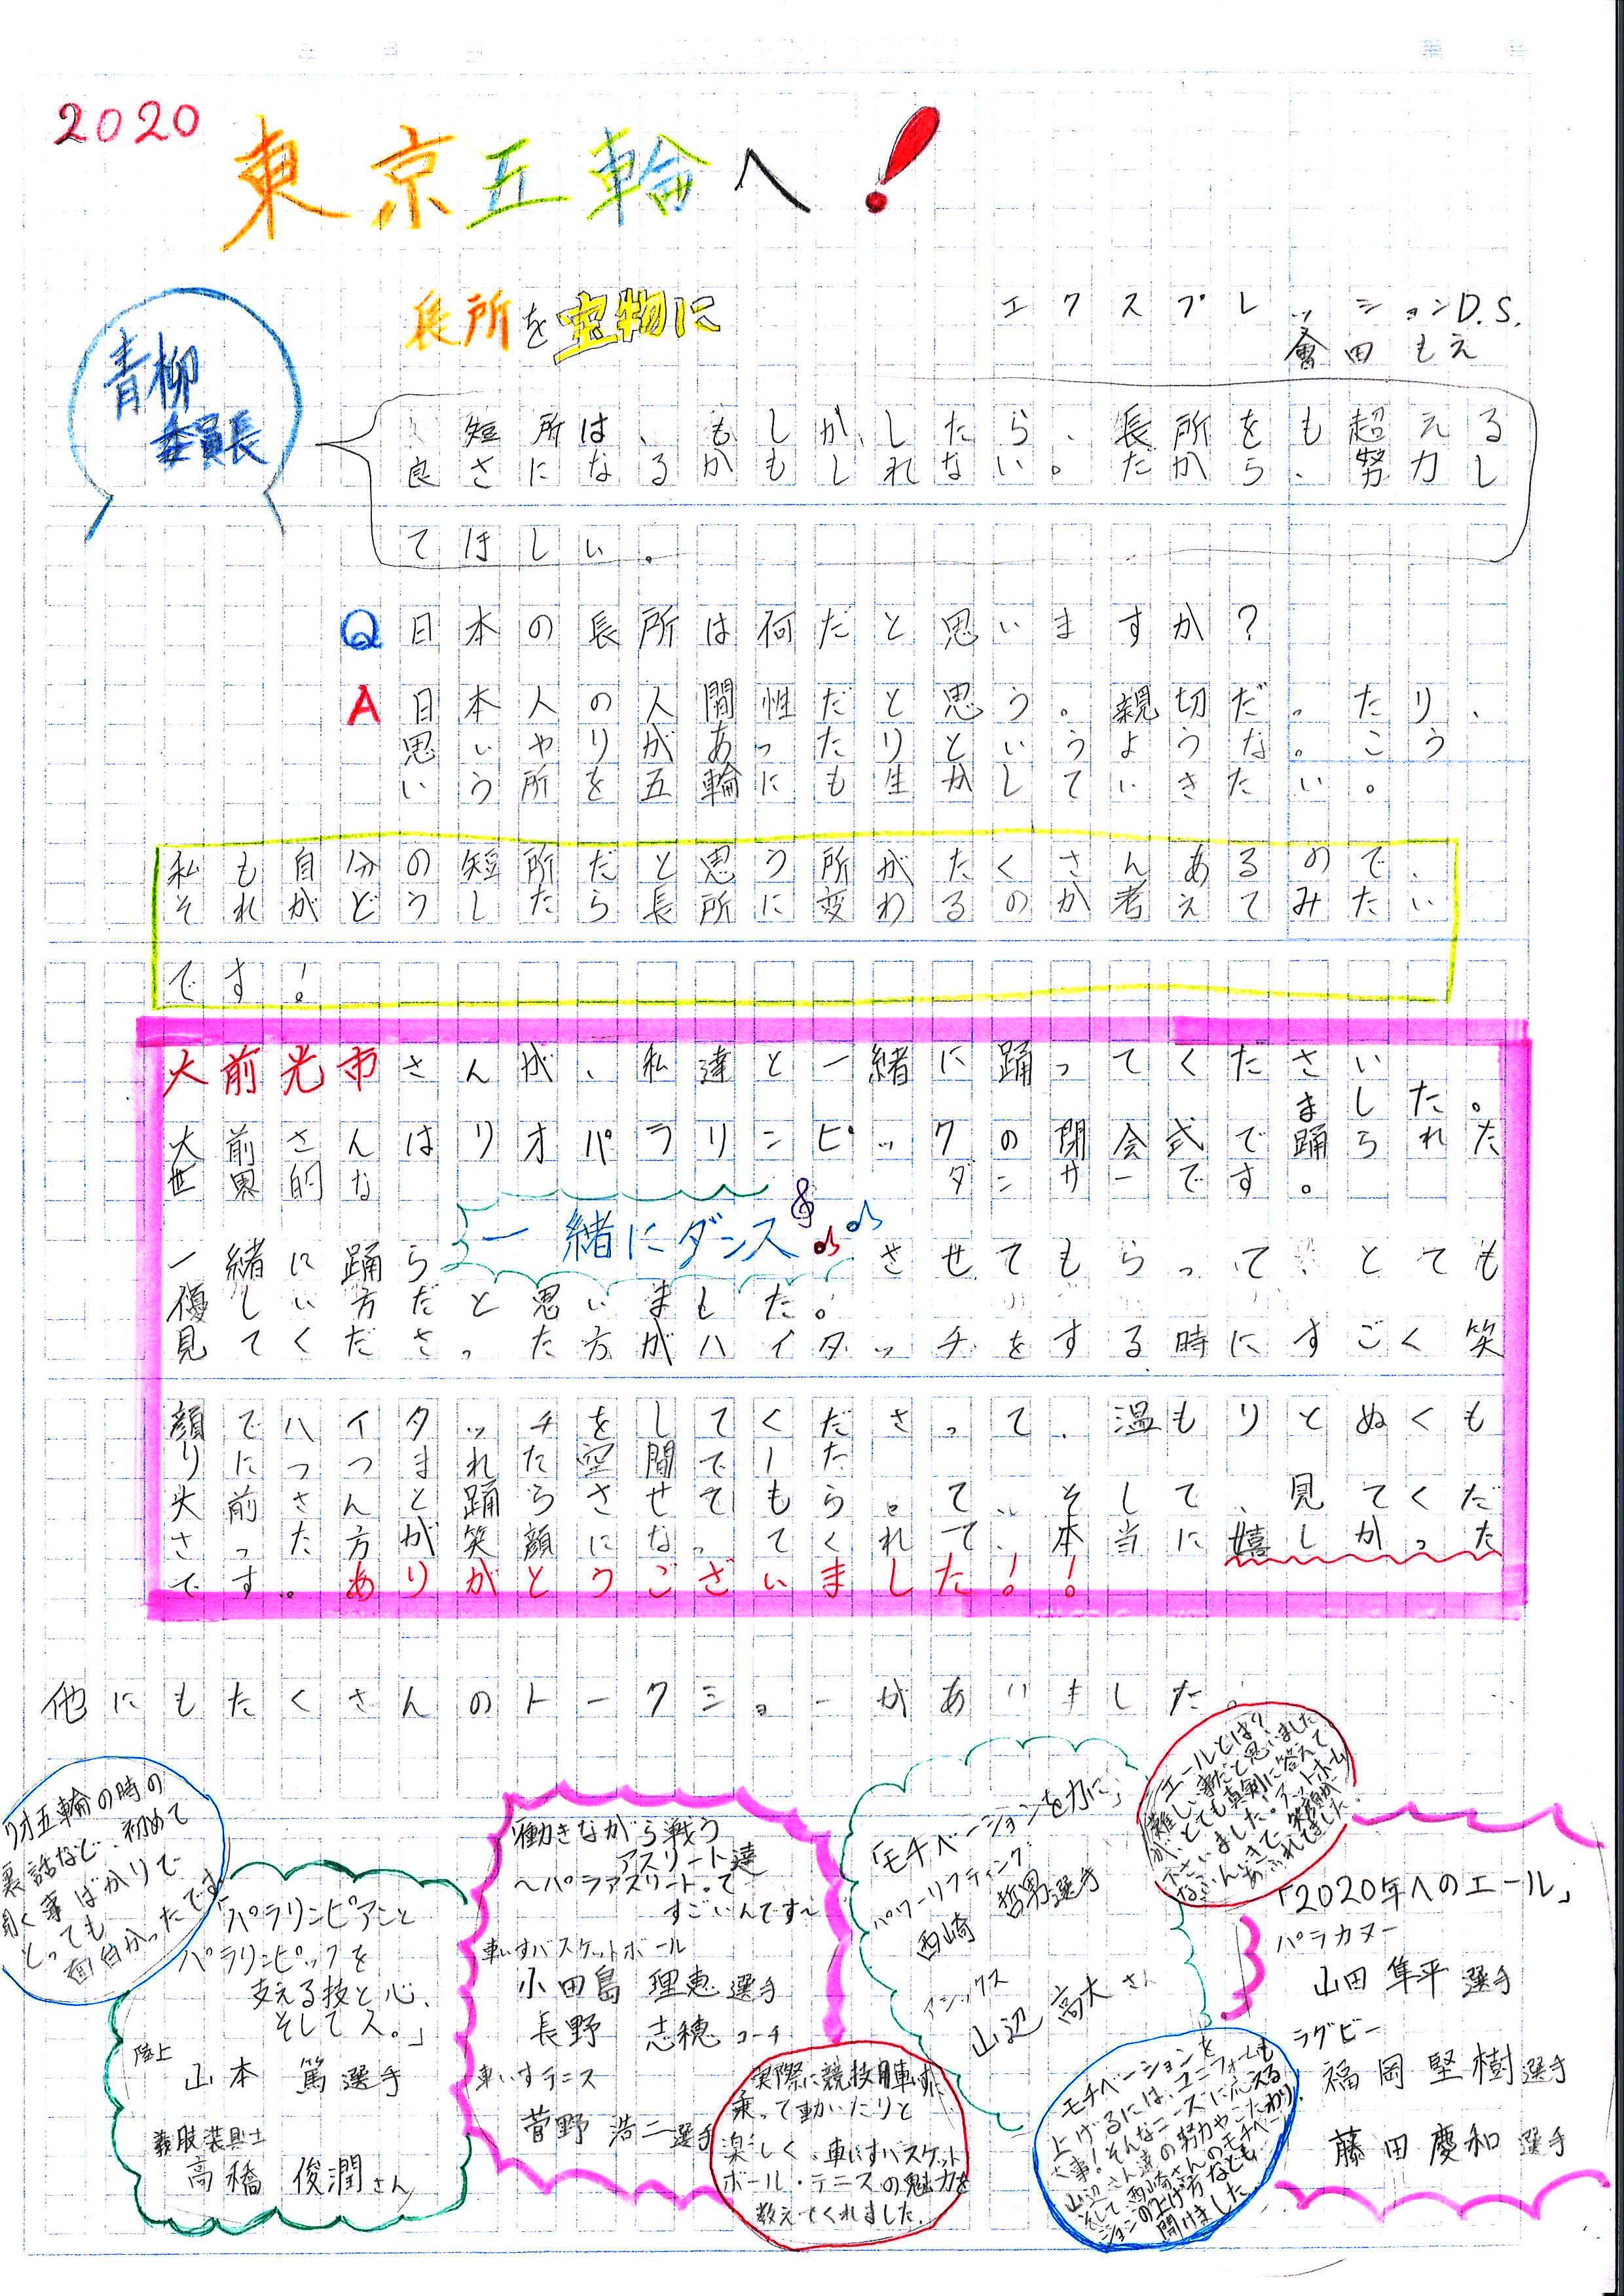 2020
東京五輪へ!
長所を宝物に
エクスプレッションD.S.
會田もえ
青柳
委員長
短所は、もしかしたら、長所をも超える
良さになるかもしれない。だから、努力し
てほしい。
Q 日本の長所は何だと思いますか?
A 日本人の人間性だと思う。親切だったり、
思いやりがあったりというような。こう
いう所を五輪にも生かしていきたい。
私も自分の短所だと思う所がたくさんあるので、
それがどうしたら長所に変わるのか考えてみたい
です!
大前光市さんが、私達と一緒に踊ってください
ました。
大前さんはリオパラリンピックの閉会式で踊られた
世界的なダンサーです。
一緒にダンス
一緒に踊らさせてもらって、とても
優しい方だと思いました。
見てくださった方がハイタッチをする時にすごく笑
顔でハイタッチをしてくださって、温もりとぬくも
りにつつまれた空間でした
大前さんと踊らさせてもらって、そして、見てくだ
さった方が笑顔になってくれて、本当に嬉しかった
です。ありがとうございました!!
他にもたくさんのトークショーがありました。
リオ五輪の時の
裏話など、初めて
聞く事ばかりで
とっても
面白かったです
「パラリンピアンと
パラリンピックを
支える技と心、
そして人。」
陸上
山本 篤選手
義肢装具士
高橋 俊潤さん
働きながら戦う
アスリート達
〜パラアスリートって
すごいんです〜
車いすバスケットボール
小田島 理恵選手
長野 志穂コーチ
車いすテニス
菅野 浩二選手
実際に競技用車いすに
乗って動いたりと
楽しく、車いすバスケット
ボール・テニスの魅力を
教えてくれました。
「モチベーションを力に」
パワーリフティング
西崎 哲男選手
アシックス
山辺 高大さん
モチベーションを
上げるには、ユニフォームも
大事!そんなニーズに応える
山辺さん達の努力やこだわり、
そして西崎さんのモチベー
ションの上げ方なども
聞けました
エールとは?
難しい事だと思いました
が、とても真剣に答えて
下さいました。アットホーム
なふんいきで、笑顔が
あふれてました。
「2020年へのエール」
パラカヌー
山田 隼平選手
ラグビー
福岡堅樹選手
藤田慶和選手